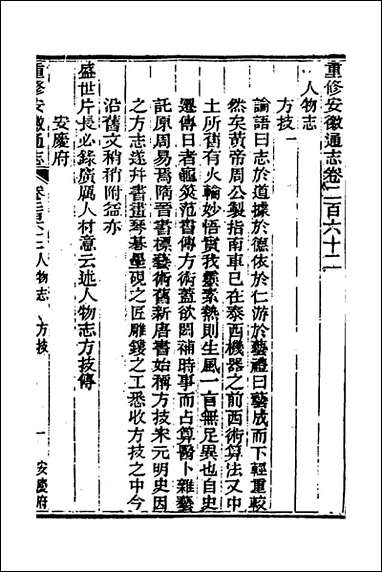 重修安徽通志卷二百六十二
人物志
方技一
論語曰志於道據於德依於仁游於藝禮曰藝成而下輕重較
然矣黃帝周公製指南車已在泰西機器之前西術算法又中
土所舊有火輪妙悟實我素熱則生風一言無足異也自史
遷傳日者龜筴范書傳方術蓋欲闕補時事而占算醫卜雜藝
託原周易焉隋晉書標藝術舊新唐書始稱方技宋元明史因
之方志遂幷書畫琴碁墨硯之匠雕鏤之工悉收方技之中今
沿舊文稍稍附益亦
盛世片長必錄廣厲人材意云述人物志方技傳
安慶府
重修安徽通志
卷二百六十二人物志
方技
一
安慶府